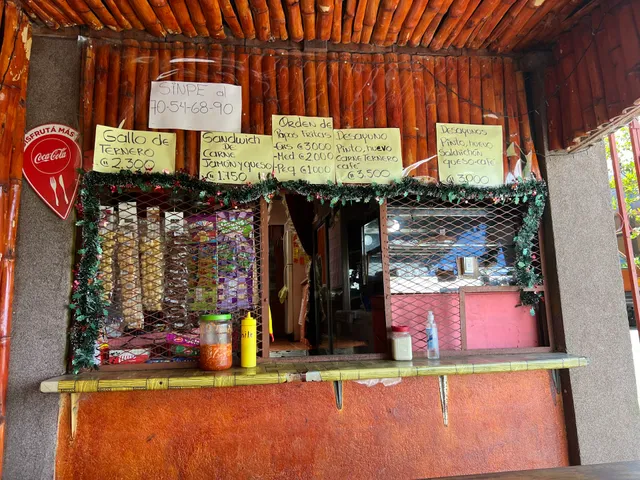 SINPE al
70-54-68-90
DISFRUTÁ MÁS
Coca-Cola
Gallo de
TERNERO
₡ 2.300
Sandwich
DE
CARNE
JAMÓN Y QUESO
₡ 1.750
Orden de
Papas Fritas
Grs ₡ 3000
Med ₡ 2000
Peq ₡ 1000
DESAYUNO
Pinto, huevo
CARNE TERNERO
CAFÉ
₡ 3,500
DESAYUNOS
Pinto, huevo
Salchicha
queso-café
₡ 3000